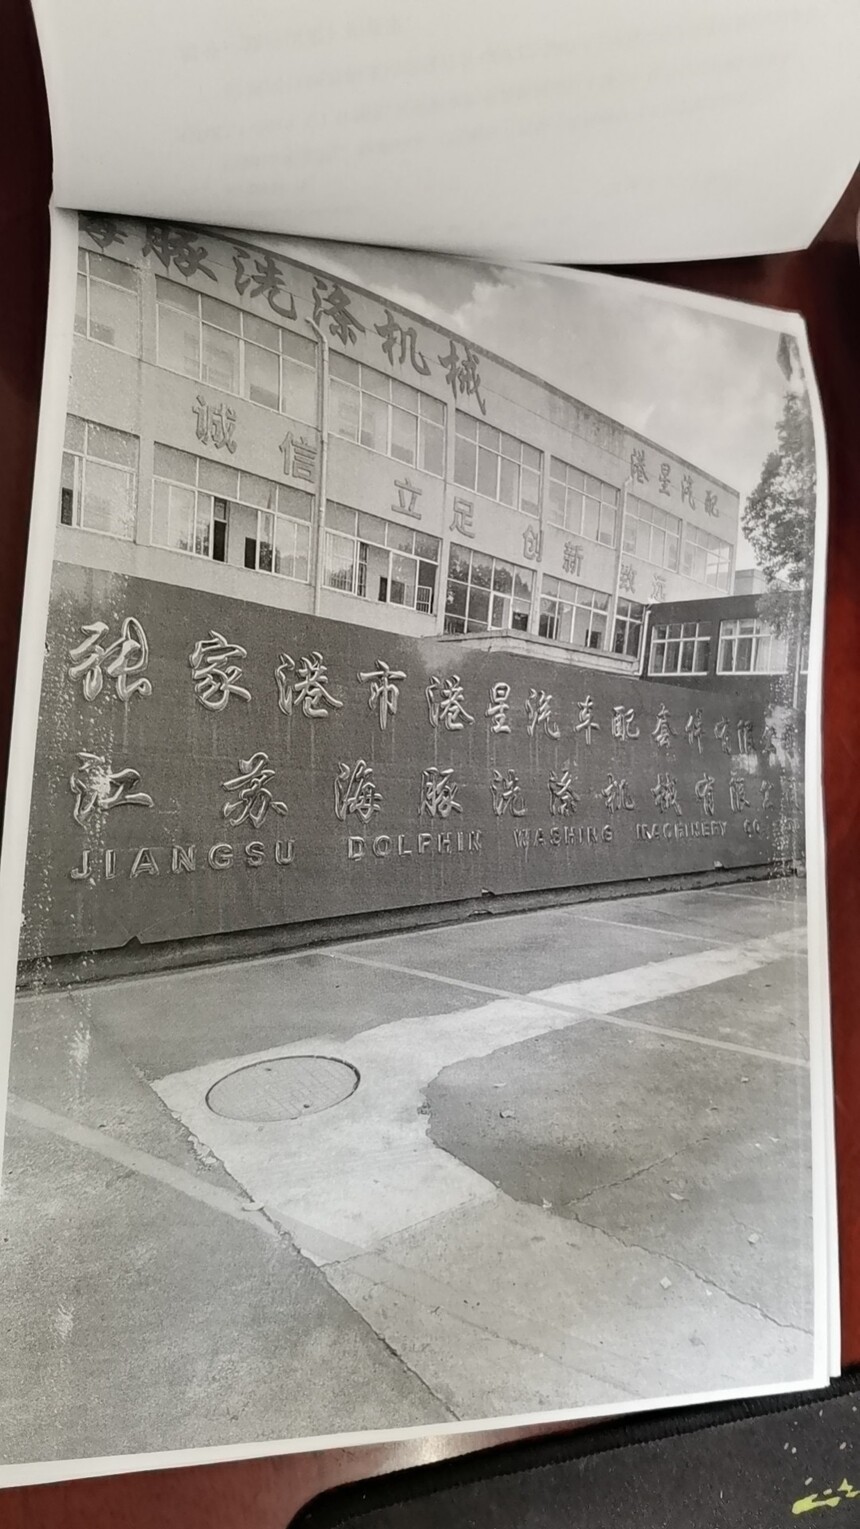 豚洗涤机械
诚信 立足创新 致远
港星汽配
张家港市港星汽车配套件有限
江苏海豚洗涤机械有限
JIANGSU DOLPHIN WASHING MACHINERY CO